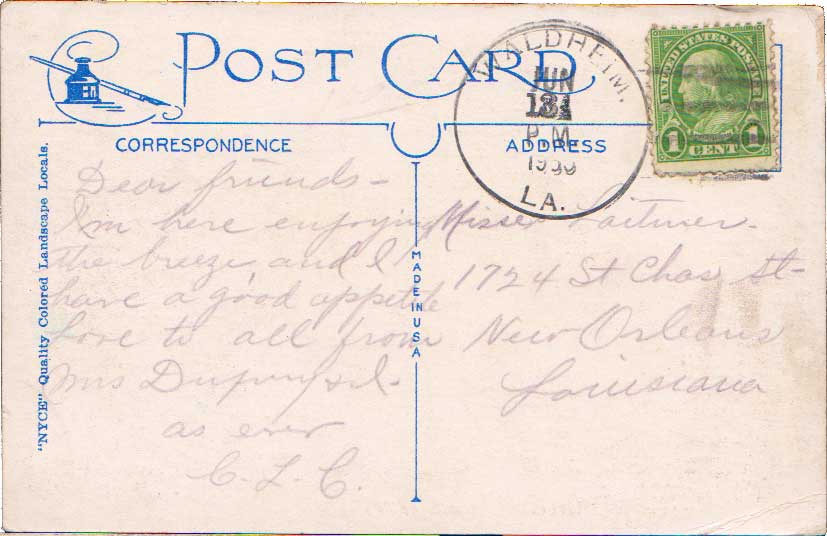 POST CARD
CORRESPONDENCE
ADDRESS
WALDHEIM,
JUN
13
P.M.
LA.
UNITED STATES POSTAGE
1 CENT 1
"NYCE" Quality Colored Landscape Locals.
MADE IN USA
Dear friends -
I'm here enjoying
the breeze, and I
have a good appetite
Love to all from
Mrs
as ever
C. L. C.
1724 St Chas St-
New Orleans
Louisiana